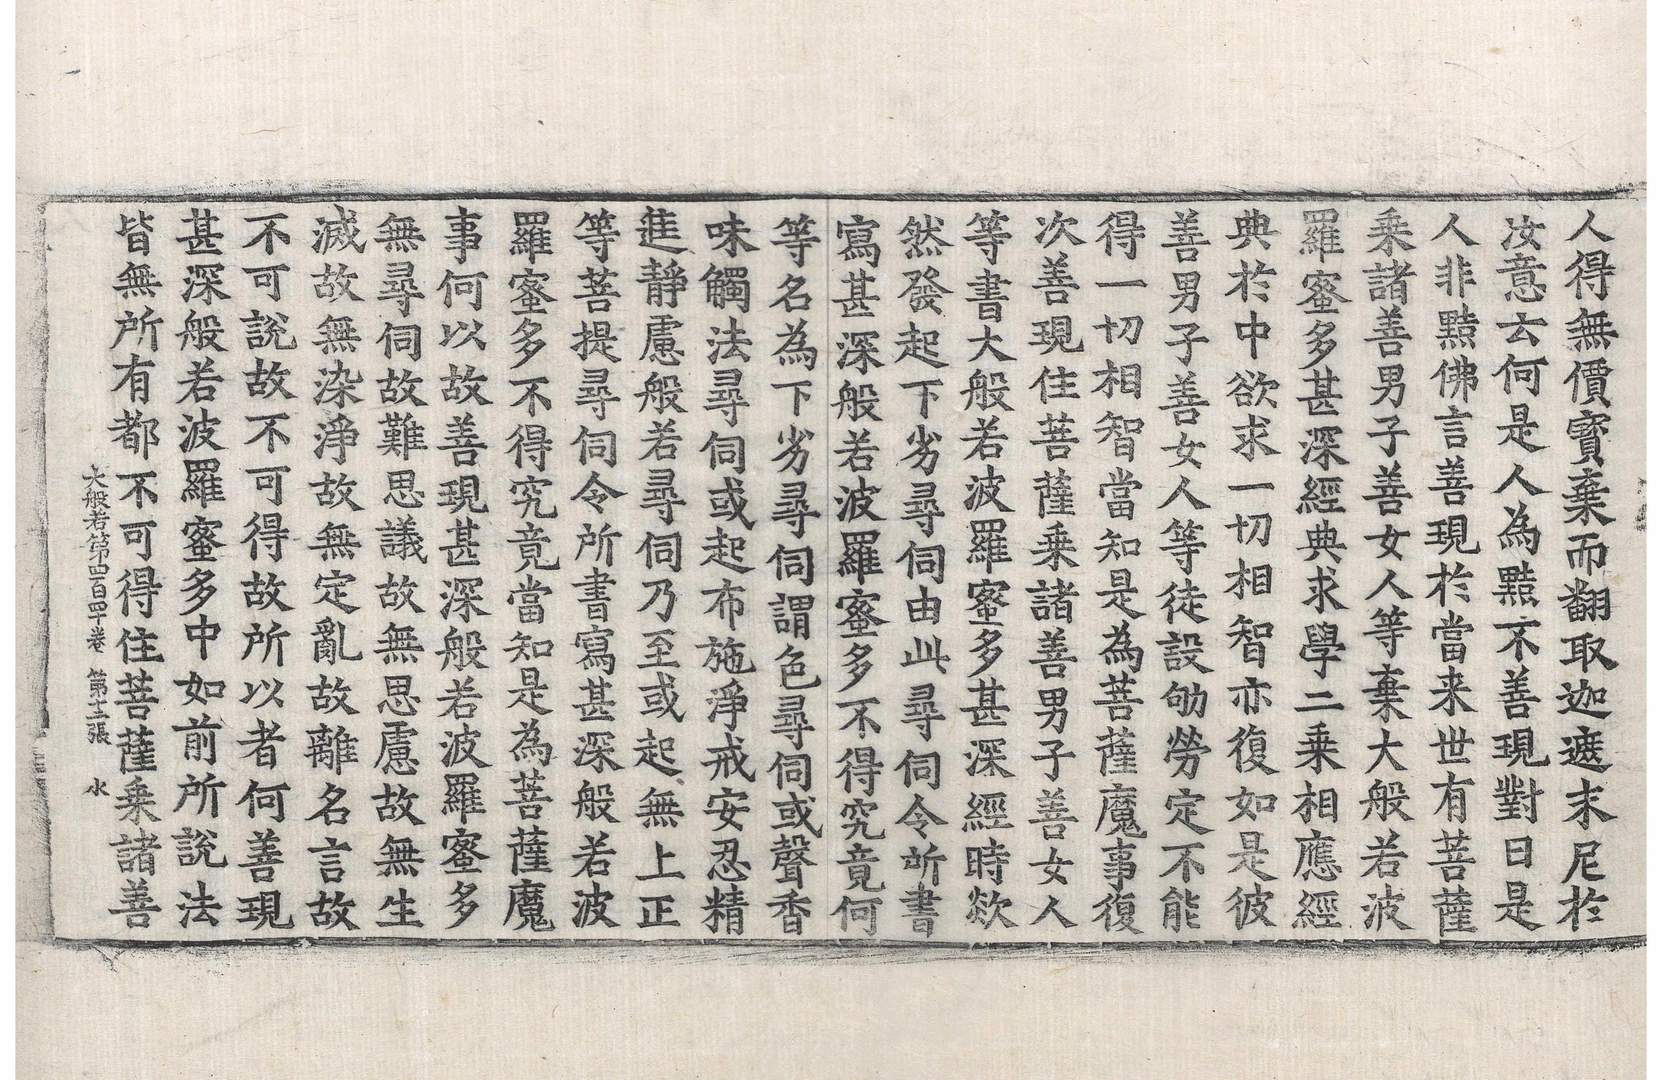 人得無價寳棄而翻取迦遮末尼於
汝意云何是人為黠不善現對曰是
人非黠佛言善現於當来世有菩薩
乗諸善男子善女人等棄大般若波
羅蜜多甚深經典求學二乗相應經
典於中欲求一切相智亦復如是彼
善男子善女人等徒設劬勞定不能
得一切相智當知是為菩薩魔事復
次善現住菩薩乗諸善男子善女人
等書大般若波羅蜜多甚深經時欻
然發起下劣尋伺由此尋伺令所書
寫甚深般若波羅蜜多不得究竟何
等名為下劣尋伺謂色尋伺或聲香
味觸法尋伺或起布施淨戒安忍精
進靜慮般若尋伺乃至或起無上正
等菩提尋伺令所書寫甚深般若波
羅蜜多不得究竟當知是為菩薩魔
事何以故善現甚深般若波羅蜜多
無尋伺故難思議故無思慮故無生
滅故無染淨故無定亂故離名言故
不可說故不可得故所以者何善現
甚深般若波羅蜜多中如前所說法
皆無所有都不可得住菩薩乗諸善
大般若第四百四十卷 第十二張 水